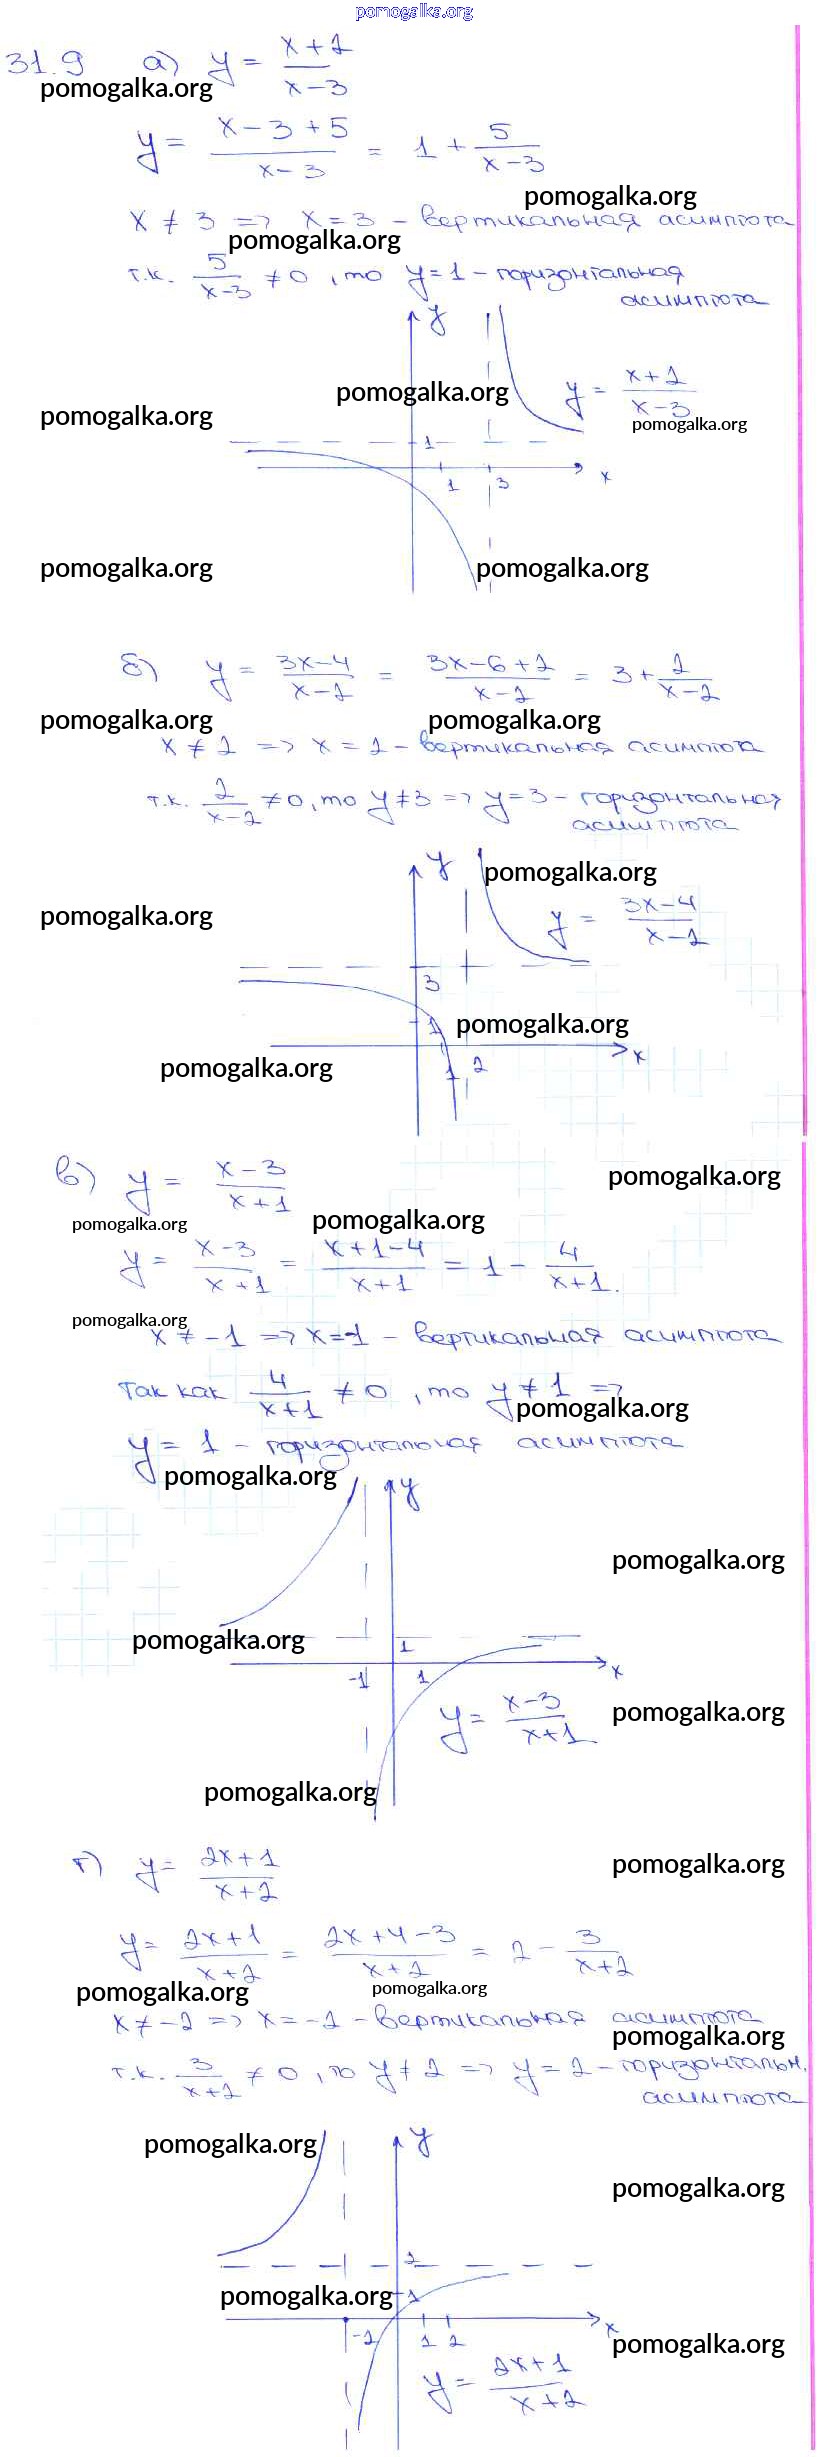 pomogalka.org
31.9 а) y = (x+2)/(x-3)
pomogalka.org
y = (x-3+5)/(x-3) = 1 + 5/(x-3)
pomogalka.org
x ≠ 3 => x = 3 - вертикальная асимптота
pomogalka.org
т.к. 5/(x-3) ≠ 0, то y = 1 - горизонтальная
асимптота
y
pomogalka.org
y = (x+2)/(x-3)
pomogalka.org
pomogalka.org
1
1 3 x
pomogalka.org pomogalka.org
б) y = (3x-4)/(x-2) = (3x-6+2)/(x-2) = 3 + 2/(x-2)
pomogalka.org pomogalka.org
x ≠ 2 => x = 2 - вертикальная асимптота
т.к. 2/(x-2) ≠ 0, то y ≠ 3 => y = 3 - горизонтальная
асимптота
y
pomogalka.org
pomogalka.org
y = (3x-4)/(x-2)
3
1
pomogalka.org
x
pomogalka.org
1 2
в) y = (x-3)/(x+1)
pomogalka.org
pomogalka.org pomogalka.org
y = (x-3)/(x+1) = (x+1-4)/(x+1) = 1 - 4/(x+1).
pomogalka.org
x ≠ -1 => x = -1 - вертикальная асимптота
так как 4/(x+1) ≠ 0, то y ≠ 1 =>
pomogalka.org
y = 1 - горизонтальная асимптота
pomogalka.org
y
pomogalka.org
pomogalka.org
1
-1 1 x
y = (x-3)/(x+1)
pomogalka.org
pomogalka.org
г) y = (2x+1)/(x+2)
pomogalka.org
y = (2x+1)/(x+2) = (2x+4-3)/(x+2) = 2 - 3/(x+2)
pomogalka.org pomogalka.org
x ≠ -2 => x = -2 - вертикальная асимптота
pomogalka.org
т.к. 3/(x+2) ≠ 0, то y ≠ 2 => y = 2 - горизонтальн.
асимптота
y
pomogalka.org
pomogalka.org
2
pomogalka.org
1
-2 1 2 x
pomogalka.org
y = (2x+1)/(x+2)